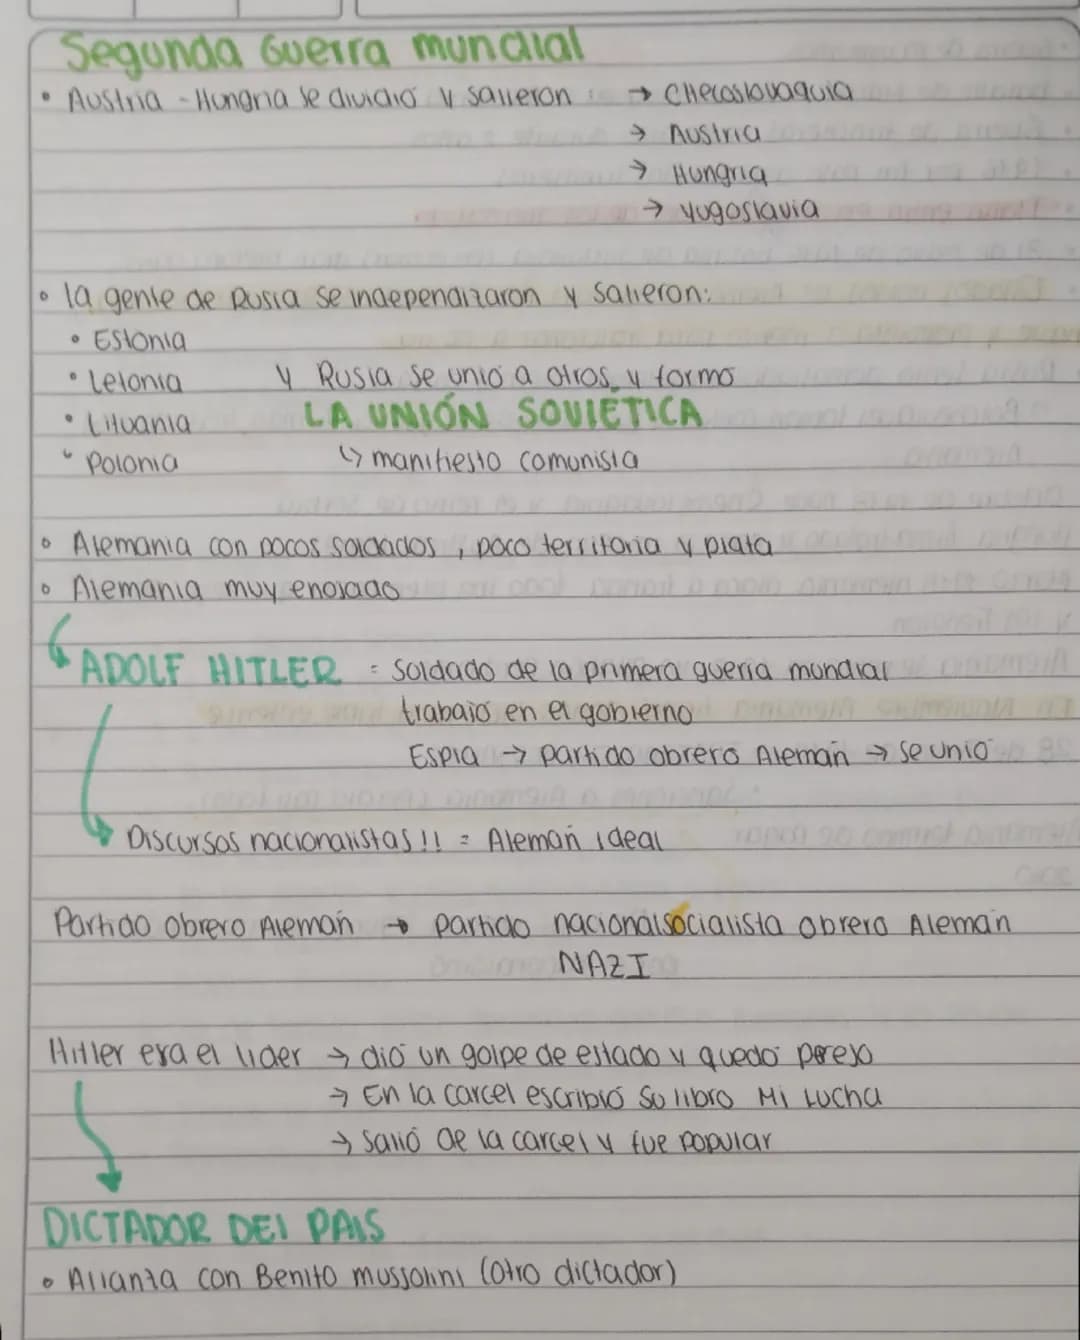 Segunda Guerra mundial
• Austria - Hungria se dividió y salieron : → CHecoslovaquia
→ Austria
→ Hungria
→ Yugoslavia
• la gente de Rusia se independizaron y salieron:
• Estonia
• Letonia y Rusia se unió a otros y formo
• Lituania LA UNIÓN SOVIÉTICA
• Polonia ↳ manifiesto comunista
• Alemania con pocos soldados , poco territoria y plata
• Alemania muy enojado
ADOLF HITLER = Soldado de la primera guerra mundial
trabajó en el gobierno
Espia → partido obrero Alemán → se unió
Discursos nacionalistas!! = Alemán ideal
Partido Obrero Alemán → partido nacionalsocialista obrero Alemán
NAZI
Hitler era el lider → dió un golpe de estado y quedó perejo
→ En la carcel escribió su libro Mi Lucha
→ Salió de la carcel y fue popular
DICTADOR DEl PAIS
• Alianza con Benito mussolini (otro dictador)